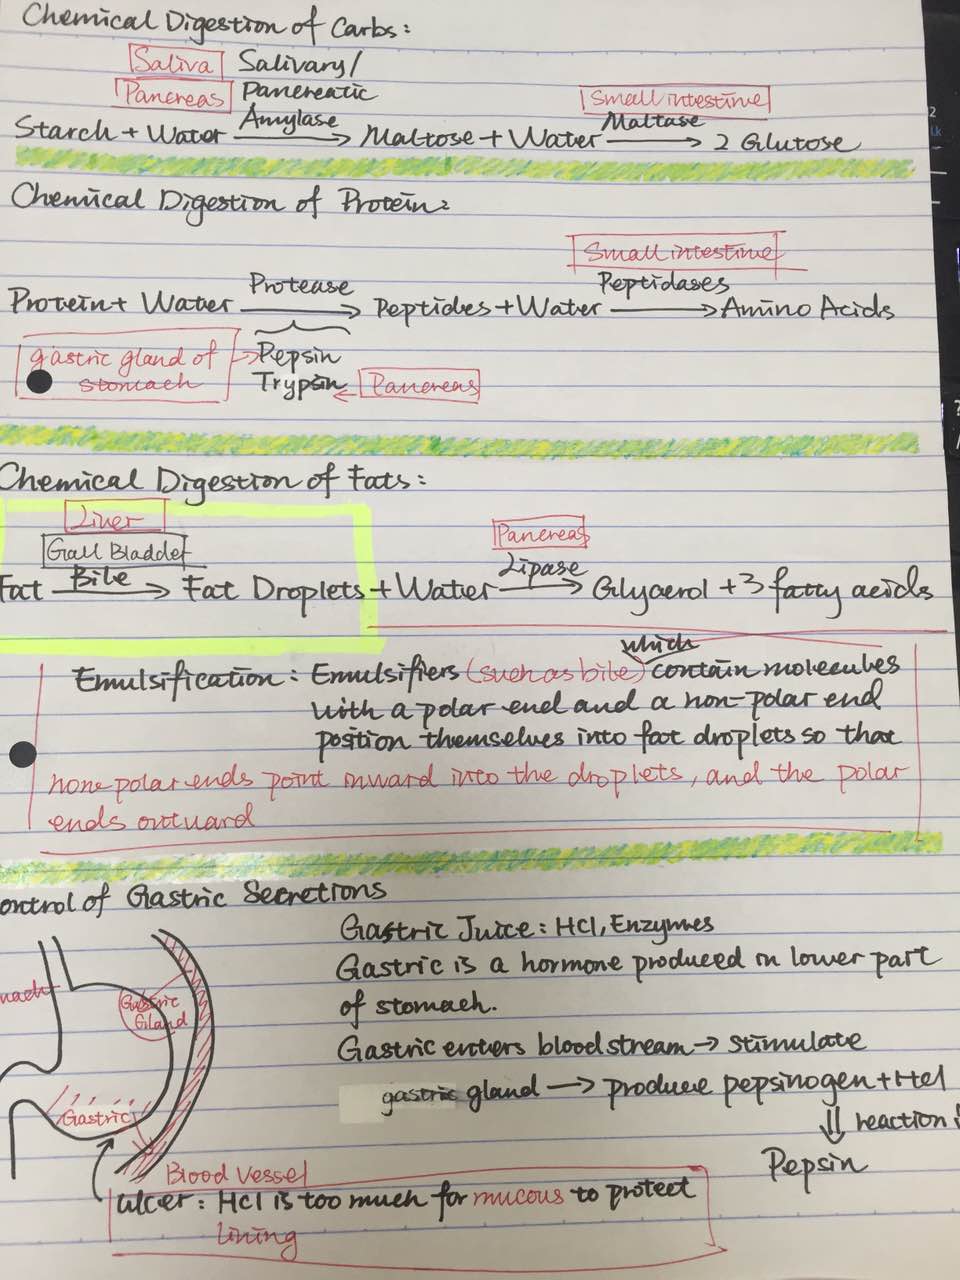 Chemical Digestion of Carbs:
Saliva Salivary/
Pancreas Pancreatic
Amylase
Small intestine
Maltase
Starch + Water → Maltose + Water → 2 Glucose
Chemical Digestion of Protein:
Small intestine
Protease Peptidases
Protein + Water → Peptides + Water → Amino Acids
gastric gland of stomach → Pepsin
Trypsin ← Pancreas
Chemical Digestion of Fats:
Liver
Gall Bladder
Pancreas
Bile Lipase
Fat → Fat Droplets + Water → Glycerol + 3 fatty acids
which
Emulsification: Emulsifiers (such as bile) contain molecules
with a polar end and a non-polar end
position themselves into fat droplets so that
none polar ends point inward into the droplets, and the polar
ends outward
ontrol of Gastric Secretions
Gastric Juice: HCl, Enzymes
Gastric is a hormone produced in lower part
of stomach.
Gastric enters bloodstream → stimulate
gastric gland → produce pepsinogen + HCl
⇓ reaction
Pepsin
mach
Gastric
Gland
Gastric
Blood Vessel
Ulcer: HCl is too much for mucous to protect
lining